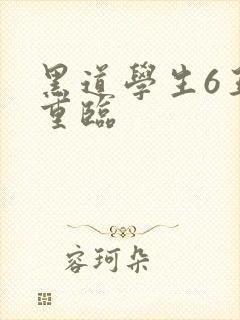 黑道學生6王
重臨
容珂朵